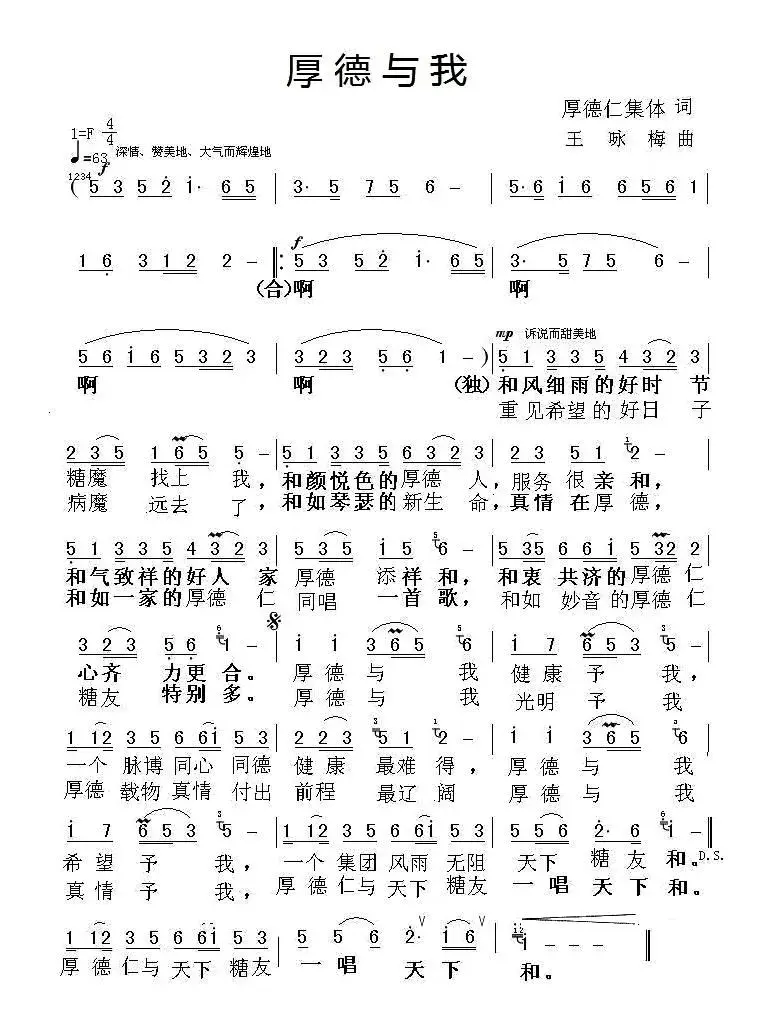 厚德与我
厚德仁集体 词
1=F 4/4
王 咏 梅 曲
♩=63 深情、赞美地、大气而辉煌地
1234 f
( 5 3 5 2 1· 6 5 | 3· 5 7 5 6 - | 5· 6 1 6 6 5 6 1 |
1 6 3 1 2 2 - |: f 5 3 5 2 1· 6 5 | 3· 5 7 5 6 - |
(合)啊 啊
5 6 1 6 5 3 2 3 | 3 2 3 5 6 1 - ) | mp 诉说而甜美地 5 1 3 3 5 4 3 2 3 |
啊 啊 (独) 和风细雨的好时 节
重见希望的好日 子
2 3 5 1 6 5 5 - | 5 1 3 3 5 6 3 2 3 | 2 3 5 1 2 - |
糖魔 找上 我，和颜悦色的厚德 人，服务 很亲和，
病魔 远去 了，和如琴瑟的新生 命，真情 在厚 德，
5 1 3 3 5 4 3 2 3 | 5 3 5 1 5 6 - | 5 35 6 6 1 5 32 2 |
和气致祥的好人 家 厚德 添祥 和，和衷 共济的厚德 仁
和如一家的厚德 仁 同唱 一首 歌，和如 妙音的厚德 仁
3 2 3 5 6 1 - | 1 1 3 6 5 6 | 1 7 6 5 3 5 - |
心齐 力更 合。 厚 德 与 我 健 康 予 我，
糖友 特别 多。 厚 德 与 我 光明 予 我
1 12 3 5 6 61 5 3 | 2 2 3 5 1 2 - | 1 1 3 6 5 6 |
一个 脉博 同心 同德 健 康 最难 得， 厚 德 与 我
厚德 载物 真情 付出 前程 最辽 阔 厚 德 与 我
1 7 6 5 3 5 - | 1 12 3 5 6 61 5 3 | 5 5 6 2· 6 1 - ‖
希 望 予 我，一个 集团 风雨 无阻 天下 糖 友 和。D.S.
真 情 予 我，厚 德 仁与 天下 糖友 一 唱 天 下 和。
1 12 3 5 6 61 5 3 | 5 5 6 2· 1 6 | 1 - - - ‖
厚 德 仁与 天下 糖友 一 唱 天 下 和。